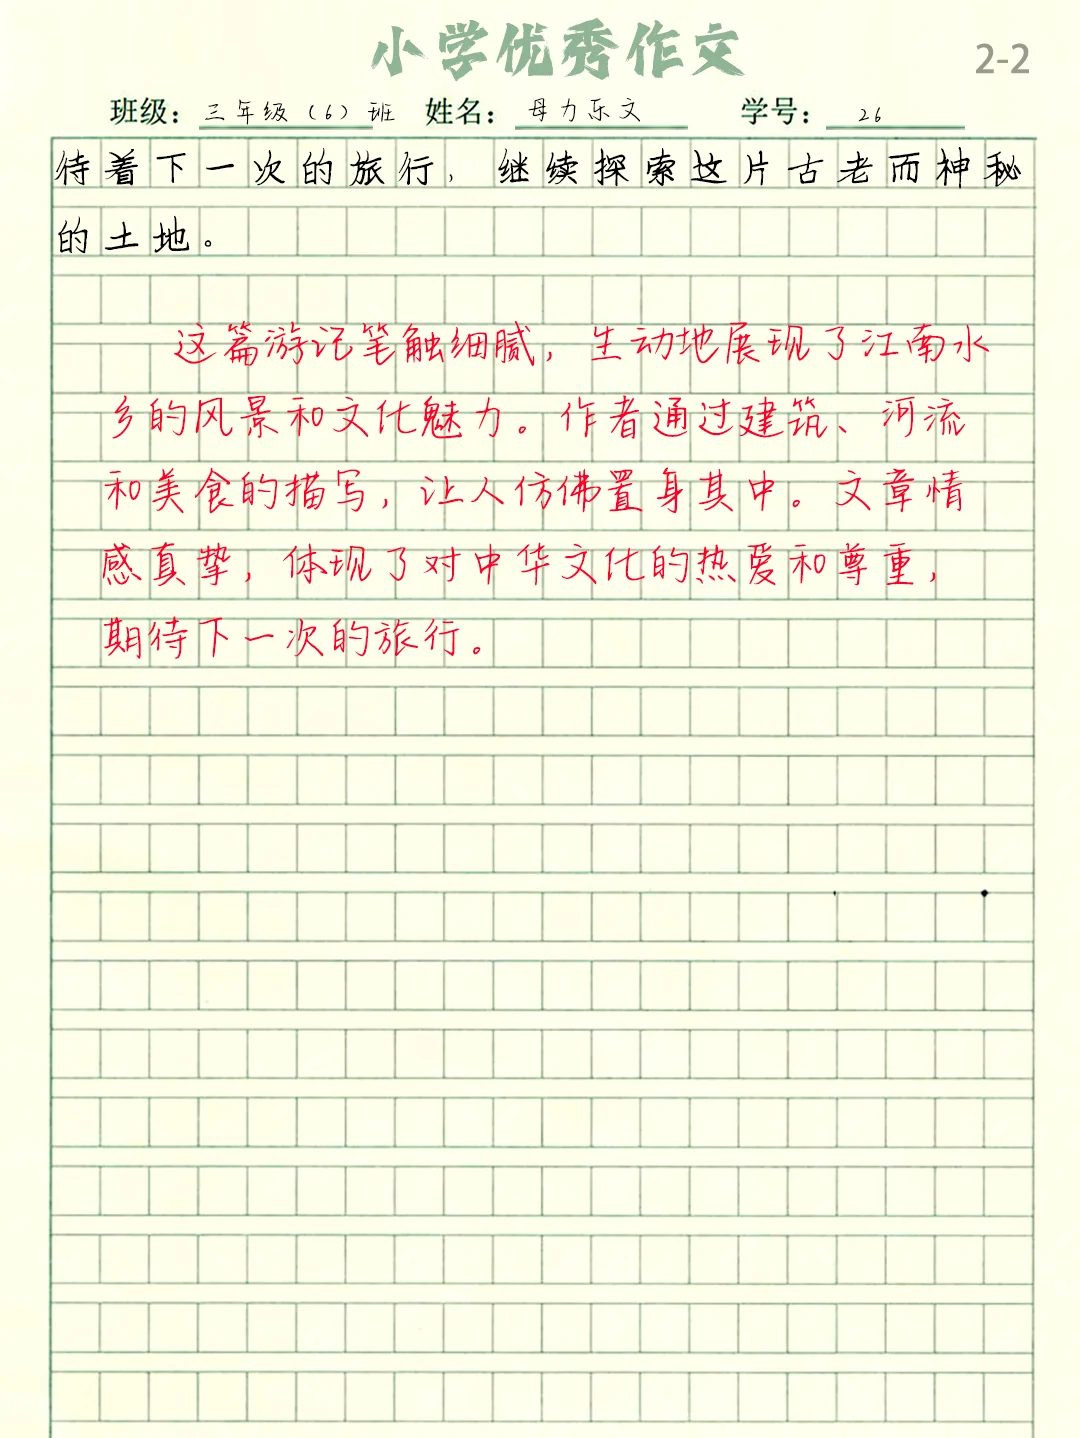 小学优秀作文
2-2
班级：三年级（6）班 姓名：母力乐文 学号：26
待着下一次的旅行，继续探索这片古老而神秘
的土地。
这篇游记笔触细腻，生动地展现了江南水
乡的风景和文化魅力。作者通过建筑、河流
和美食的描写，让人仿佛置身其中。文章情
感真挚，体现了对中华文化的热爱和尊重，
期待下一次的旅行。